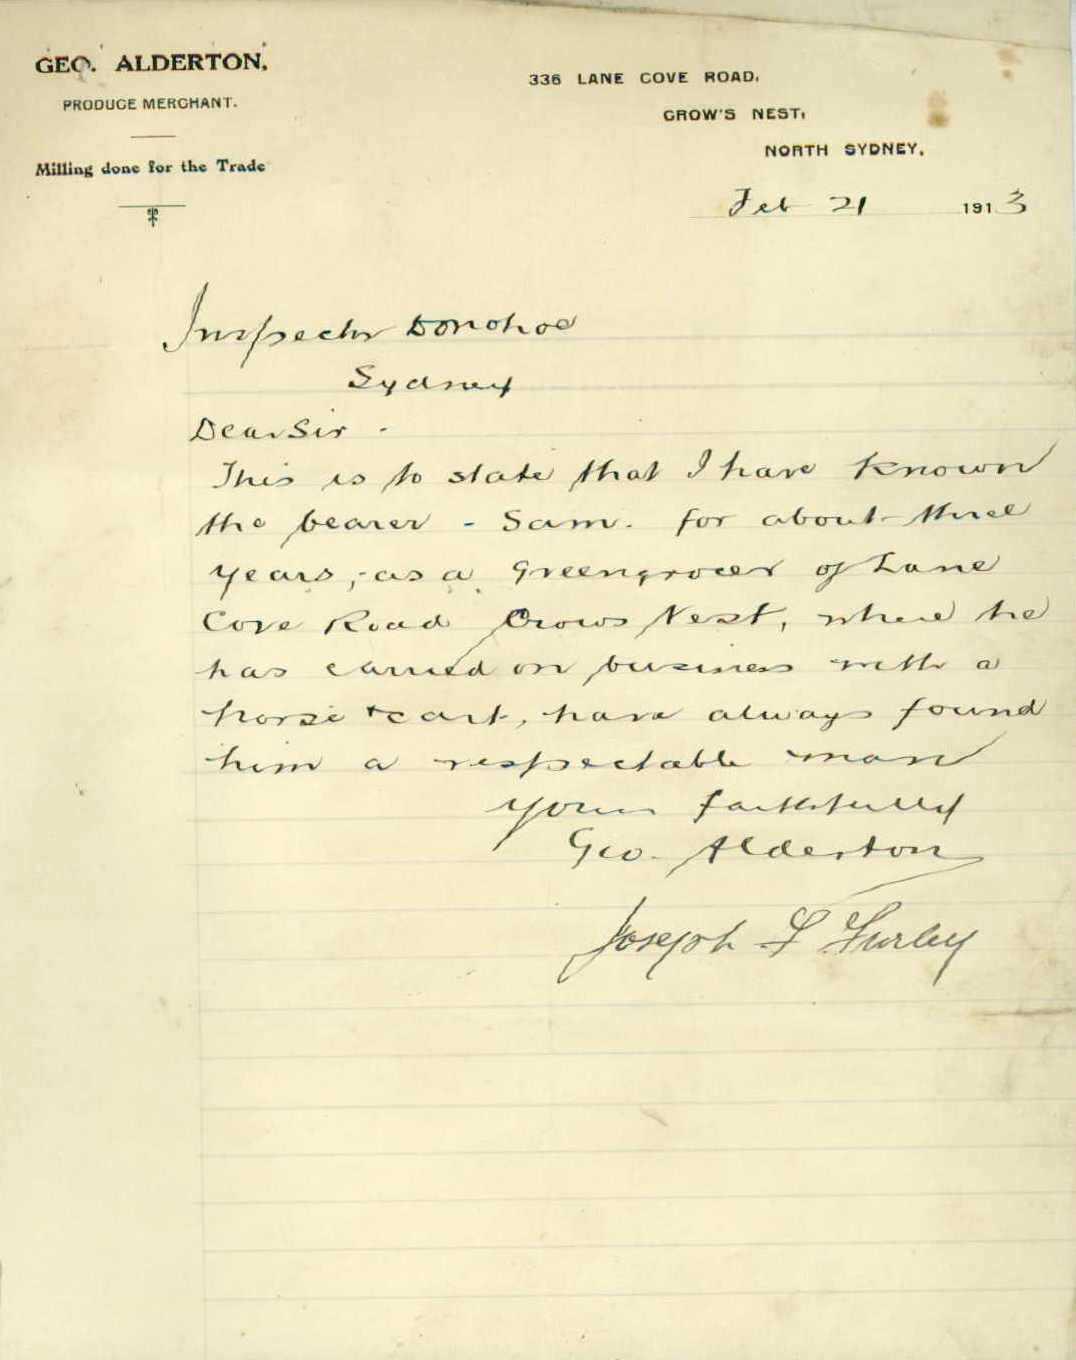 GEO. ALDERTON,
PRODUCE MERCHANT.
Milling done for the Trade
336 LANE COVE ROAD,
CROW'S NEST,
NORTH SYDNEY,
Feb 21 1913
Inspector Donohoe
Sydney
Dear Sir -
This is to state that I have known
the bearer - Sam. for about three
years, - as a Greengrocer of Lane
Cove Road Crows Nest, where he
has carried on business with a
horse + cart, have always found
him a respectable man
Yours faithfully
Geo. Alderton
Joseph F Furley